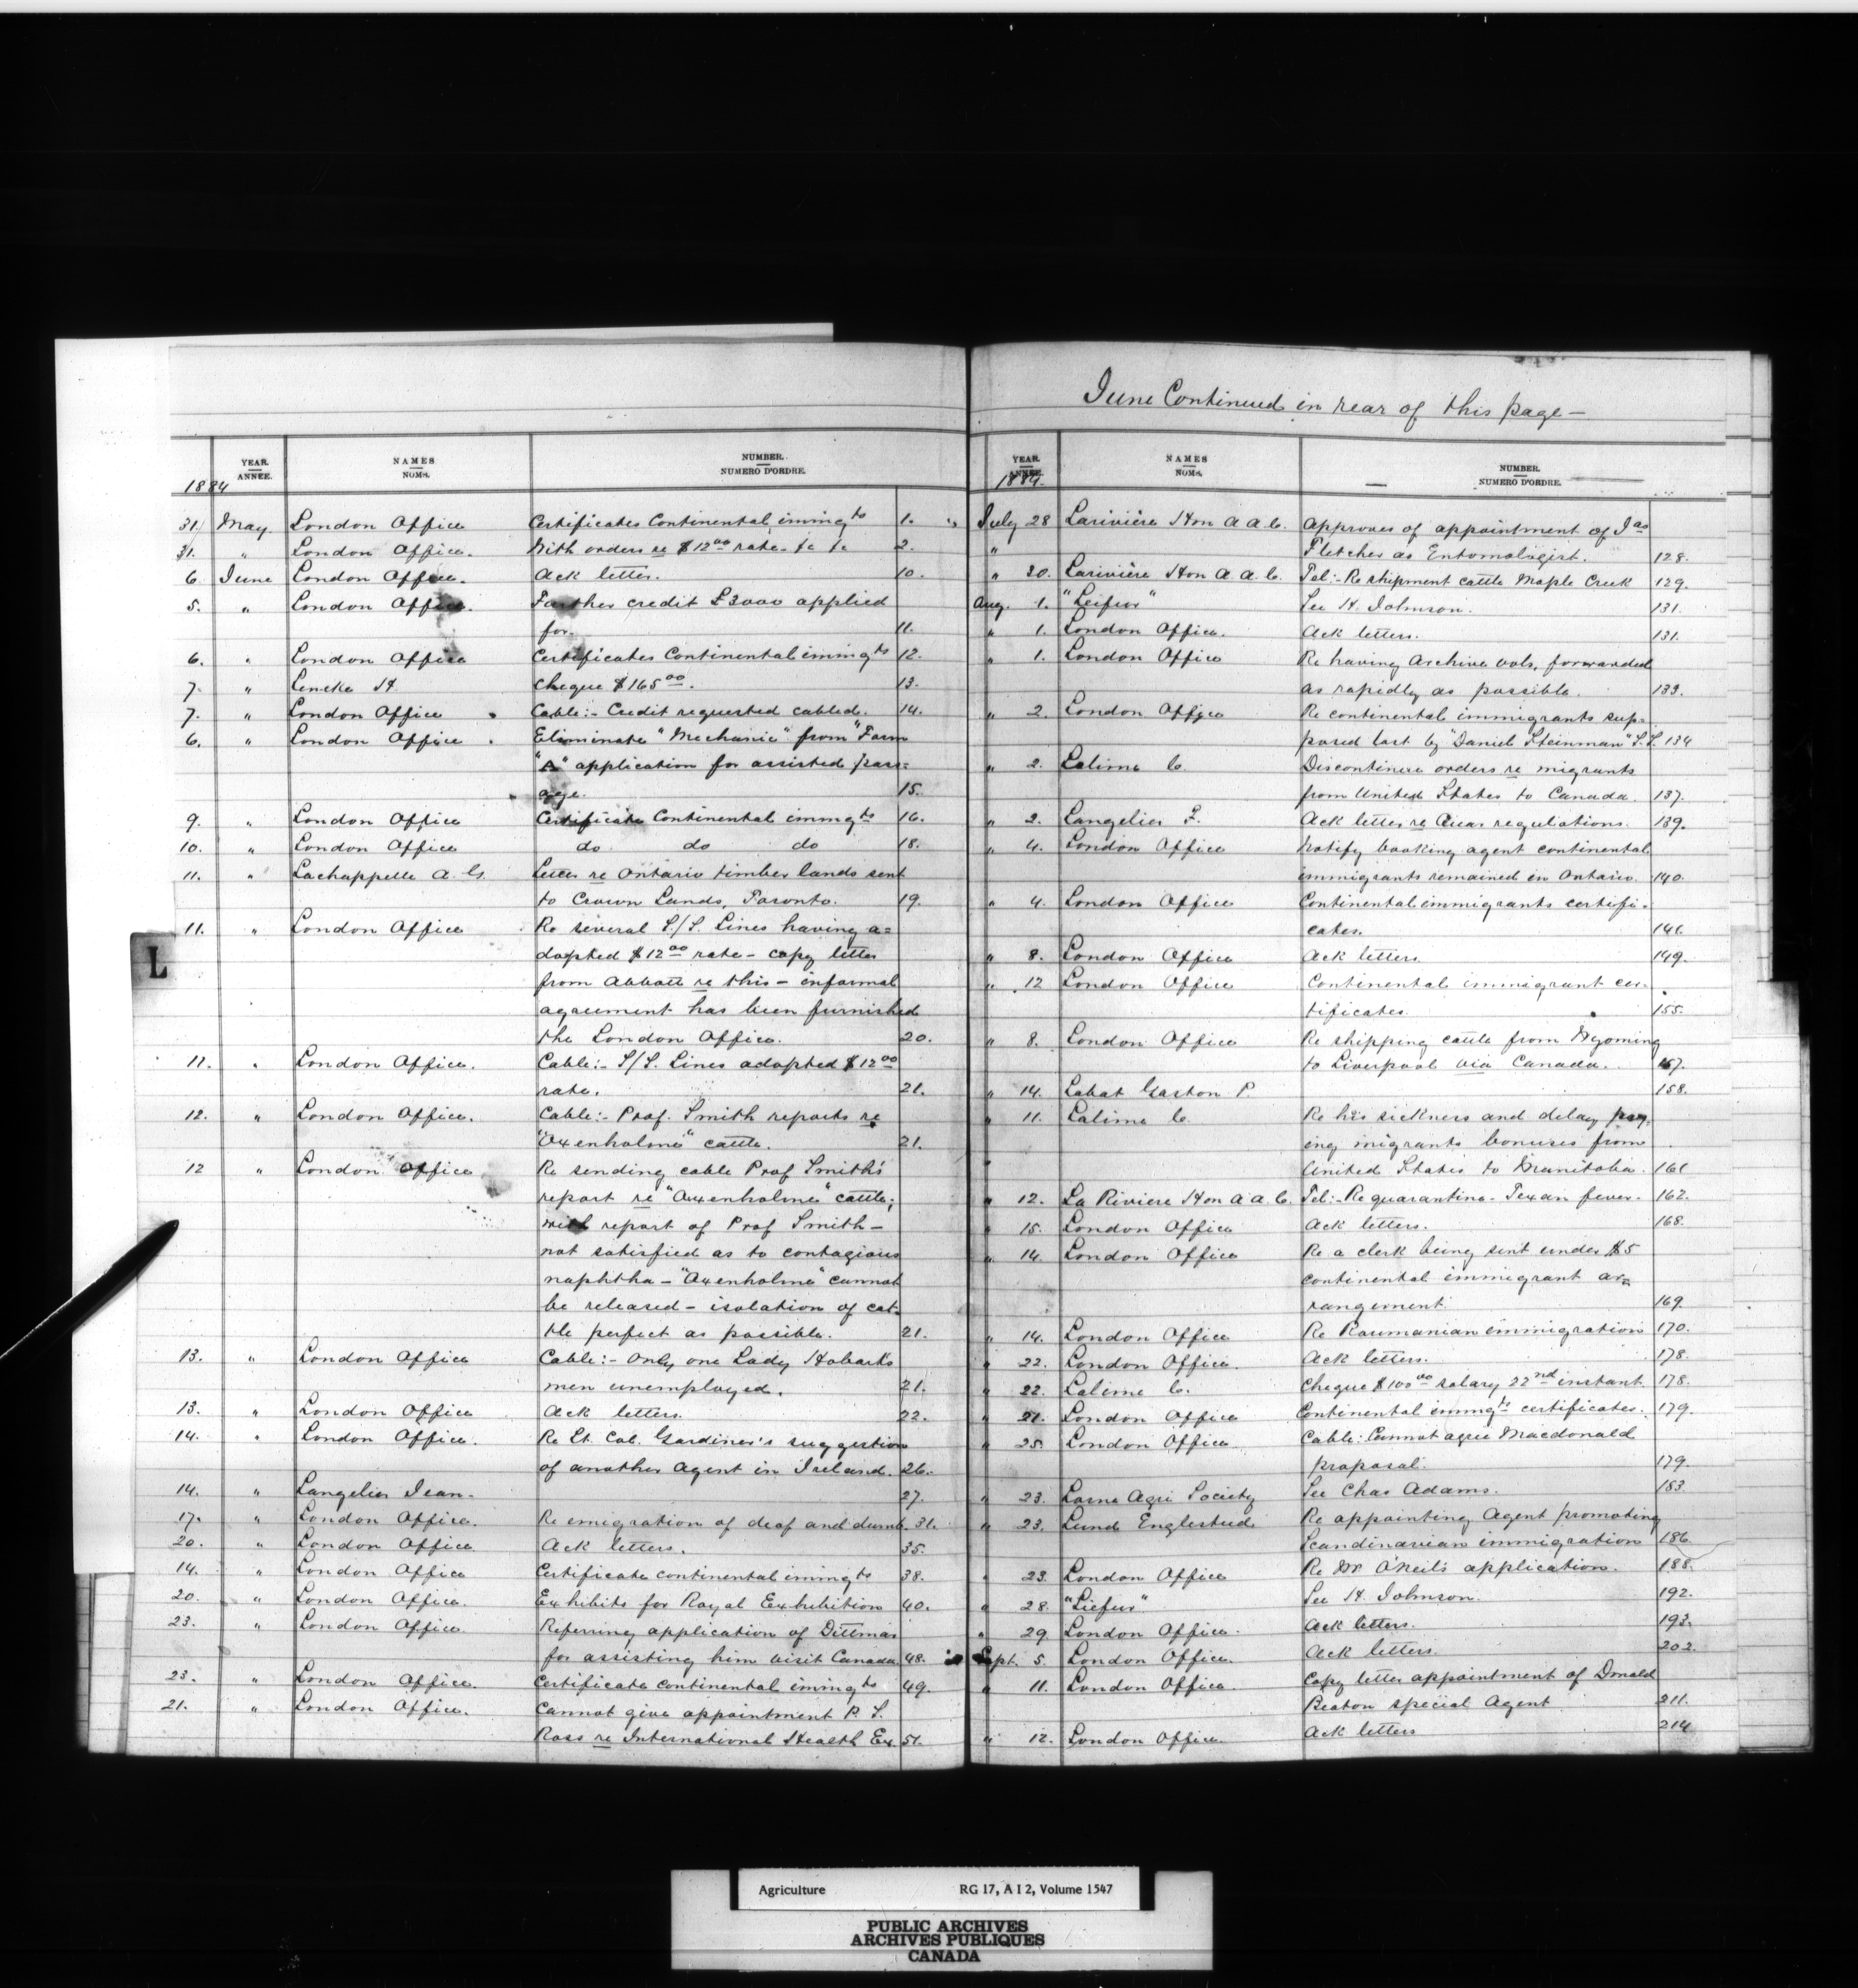 June Continued in rear of this page —
YEAR. ANNÉE. NAMES NOMS. NUMBER. NUMERO D'ORDRE.
1884
31. May London Office Certificates Continental immigts 1.
31. " London Office. With orders re $12 00 rate. &c &c 2.
6 June London Office. Ack letter. 10.
5. " London Office. Further credit £3000 applied
for. 11.
6. " London Office Certificates Continental immigts 12.
7. " Lencke H. Cheque $165 00. 13.
7. " London Office Cable:- Credit requested cabled. 14.
6. " London Office. Eliminate "Mechanic" from "Form
"A" application for assisted pass=
age. 15.
9. " London Office Certificate Continental immigts 16.
10. " London Office do do do 18.
11. " Lachappelle A. G. Letter re Ontario timber lands sent
to Crown Lands, Toronto. 19.
11. " London Office Re several S/S. Lines having a=
dopted $12 00 rate - copy letter
from Abbott re this - informal
agreement has been furnished
the London Office. 20.
11. " London Office. Cable:- S/S. Lines adopted $12 00
rate. 21.
12. " London Office. Cable:- Prof. Smith reports re
"Oxenholme" cattle. 21.
12 " London Office Re sending cable Prof Smith's
report re "Oxenholme" cattle;
with report of Prof Smith -
not satisfied as to contagious
naphtha - "Oxenholme" cannot
be released - isolation of cat=
tle perfect as possible. 21.
13. " London Office Cable:- Only one Lady Hobart's
men unemployed. 21.
13. " London Office Ack letters. 22.
14. " London Office. Re Lt. Col. Gardiner's suggestion
of another Agent in Ireland. 26.
14. " Langelier Jean. 27.
17. " London Office. Re emigration of deaf and dumb. 31.
20. " London Office Ack letters. 35.
14. " London Office Certificate continental immigts 38.
20. " London Office. Exhibits for Royal Exhibition 40.
23. " London Office. Referring application of Dittmar
for assisting him visit Canada. 48.
23. " London Office. Certificate continental immigts 49.
21. " London Office. Cannot give appointment P. S.
Ross re International Health Ex. 51.
YEAR. ANNÉE. NAMES NOMS. NUMBER. NUMERO D'ORDRE.
1884.
July 28 Larivière Hon A. A. C. Approves of appointment of Jas
" Fletcher as Entomologist. 128.
" 30. Larivière Hon A. A. C. Tel:- Re shipment cattle Maple Creek 129.
Aug. 1. "Leifur" See H. Johnson. 131.
" 1. London Office. Ack letters. 131.
" 1. London Office Re having Archive vols. forwarded
as rapidly as possible. 133.
" 2. London Office Re continental immigrants sup=
posed lost by "Daniel Steinman" S.S. 134
" 2. Lalime C. Discontinue orders re migrants
from United States to Canada. 137.
" 2. Langelier F. Ack letter re regulations. 139.
" 4. London Office Notify booking agent continental
immigrants remained in Ontario. 140.
" 4. London Office Continental immigrants certifi=
cates. 146.
" 8. London Office Ack letters. 149.
" 12 London Office Continental immigrant cer=
tificates. 155.
" 8. London Office Re shipping cattle from Wyoming
to Liverpool via Canada. 157.
" 14. Labat Gaston P. 158.
" 11. Lalime C. Re his sickness and delay pay=
ing migrants bonuses from
United States to Manitoba. 161
" 12. La Riviere Hon A. A. C. Tel:- Re quarantine - Texan fever. 162.
" 15. London Office Ack letters. 168.
" 14. London Office Re a clerk being sent under $5
continental immigrant ar=
rangement 169.
" 14. London Office Re Roumanian immigration 170.
" 22. London Office. Ack letters. 178.
" 22. Lalime C. Cheque $100 00 salary 22nd instant. 178.
" 21. London Office Continental immigts certificates. 179.
" 25. London Office Cable: Cannot agree Macdonald
proposal. 179.
" 23. Lorne Agri Society See Chas Adams. 183.
" 23. Lund Englestud Re appointing Agent promoting
Scandinavian immigration 186.
" 23. London Office Re Mr O'Neil's application. 188.
" 28. "Liefur" See H. Johnson. 192.
" 29. London Office. Ack letters. 193.
Sept. 5. London Office. Ack letters. 202.
" 11. London Office. Copy letter appointment of Donald
Beaton special Agent 211.
" 12. London Office. Ack letters 214
L
Agriculture RG 17, A I 2, Volume 1547
PUBLIC ARCHIVES
ARCHIVES PUBLIQUES
CANADA